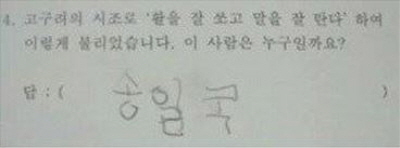 4. 고구려의 시조로 '활을 잘 쏘고 말을 잘 탄다' 하여
이렇게 불리었습니다. 이 사람은 누구일까요?
답 : ( 송일국 )